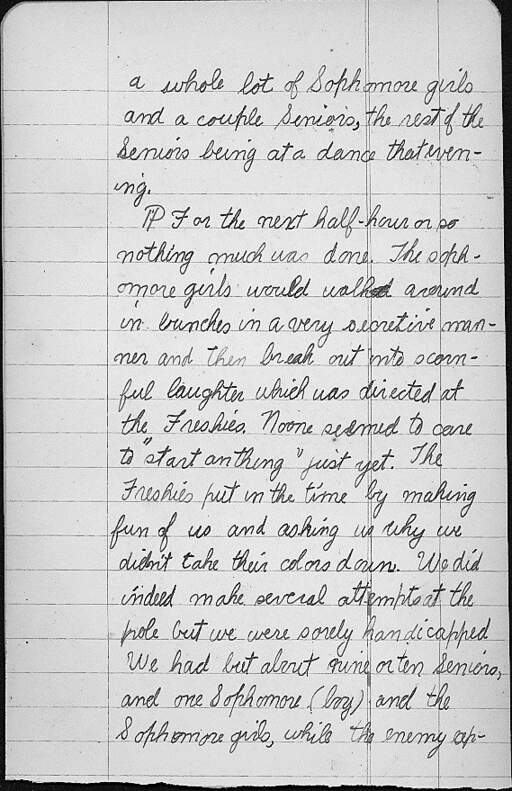 a whole lot of Sophomore girls
and a couple Seniors, the rest of the
Seniors being at a dance that even-
ing.
¶ For the next half-hour or so
nothing much was done. The soph-
omore girls would walk around
in bunches in a very secretive man-
ner and then break out into scorn-
ful laughter which was directed at
the Freshies. Noone seemed to care
to "start anthing" just yet. The
Freshies put in the time by making
fun of us and asking us why we
didn't take their colors down. We did
indeed make several attempts at the
pole but we were sorely handicapped
We had but about nine or ten Seniors,
and one Sophomore (boy) and the
Sophomore girls, while the enemy ap-